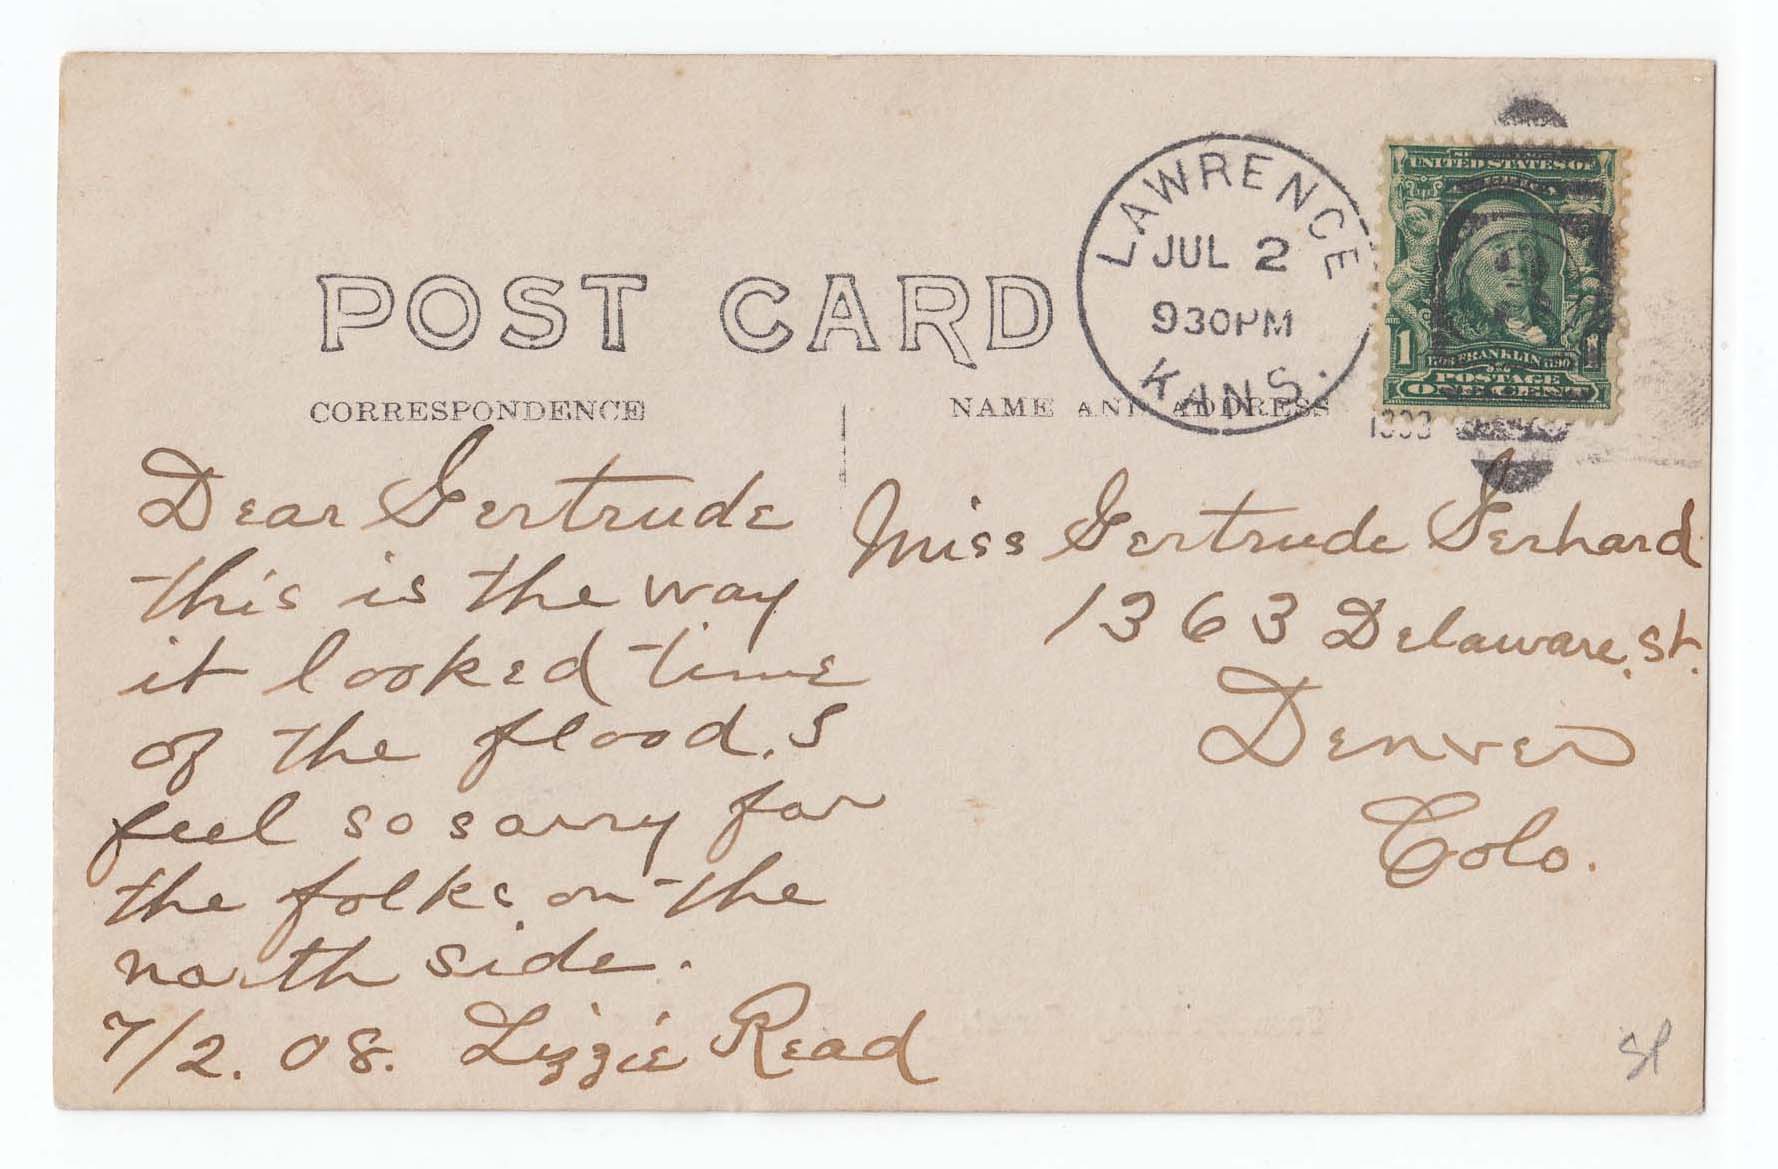 POST CARD
CORRESPONDENCE
NAME AND ADDRESS
LAWRENCE
JUL 2
930PM
KANS.
UNITED STATES OF
AMERICA
1 FRANKLIN 1
POSTAGE
ONE CENT
Dear Gertrude
this is the way
it looked time
of the flood. I
feel so sorry for
the folks on the
north side.
7/2. 08. Lizzie Read
Miss Gertrude Gerhard
1363 Delaware. St.
Denver
Colo.